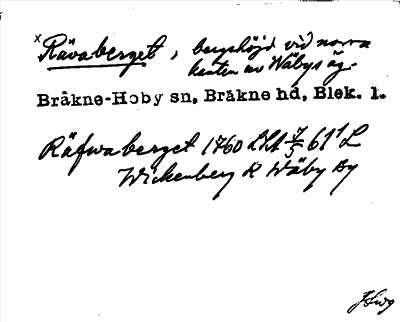 x Rävaberget, bergshöjd vid norra
kanten av Wäbys äg.
Bräkne-Hoby sn, Bräkne hd, Blek. l.
Räfwaberget 1760 LHA 61¹ L
Wickenberg R Wäby By